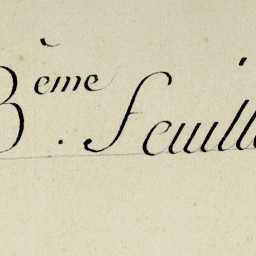 3ème. Feuille